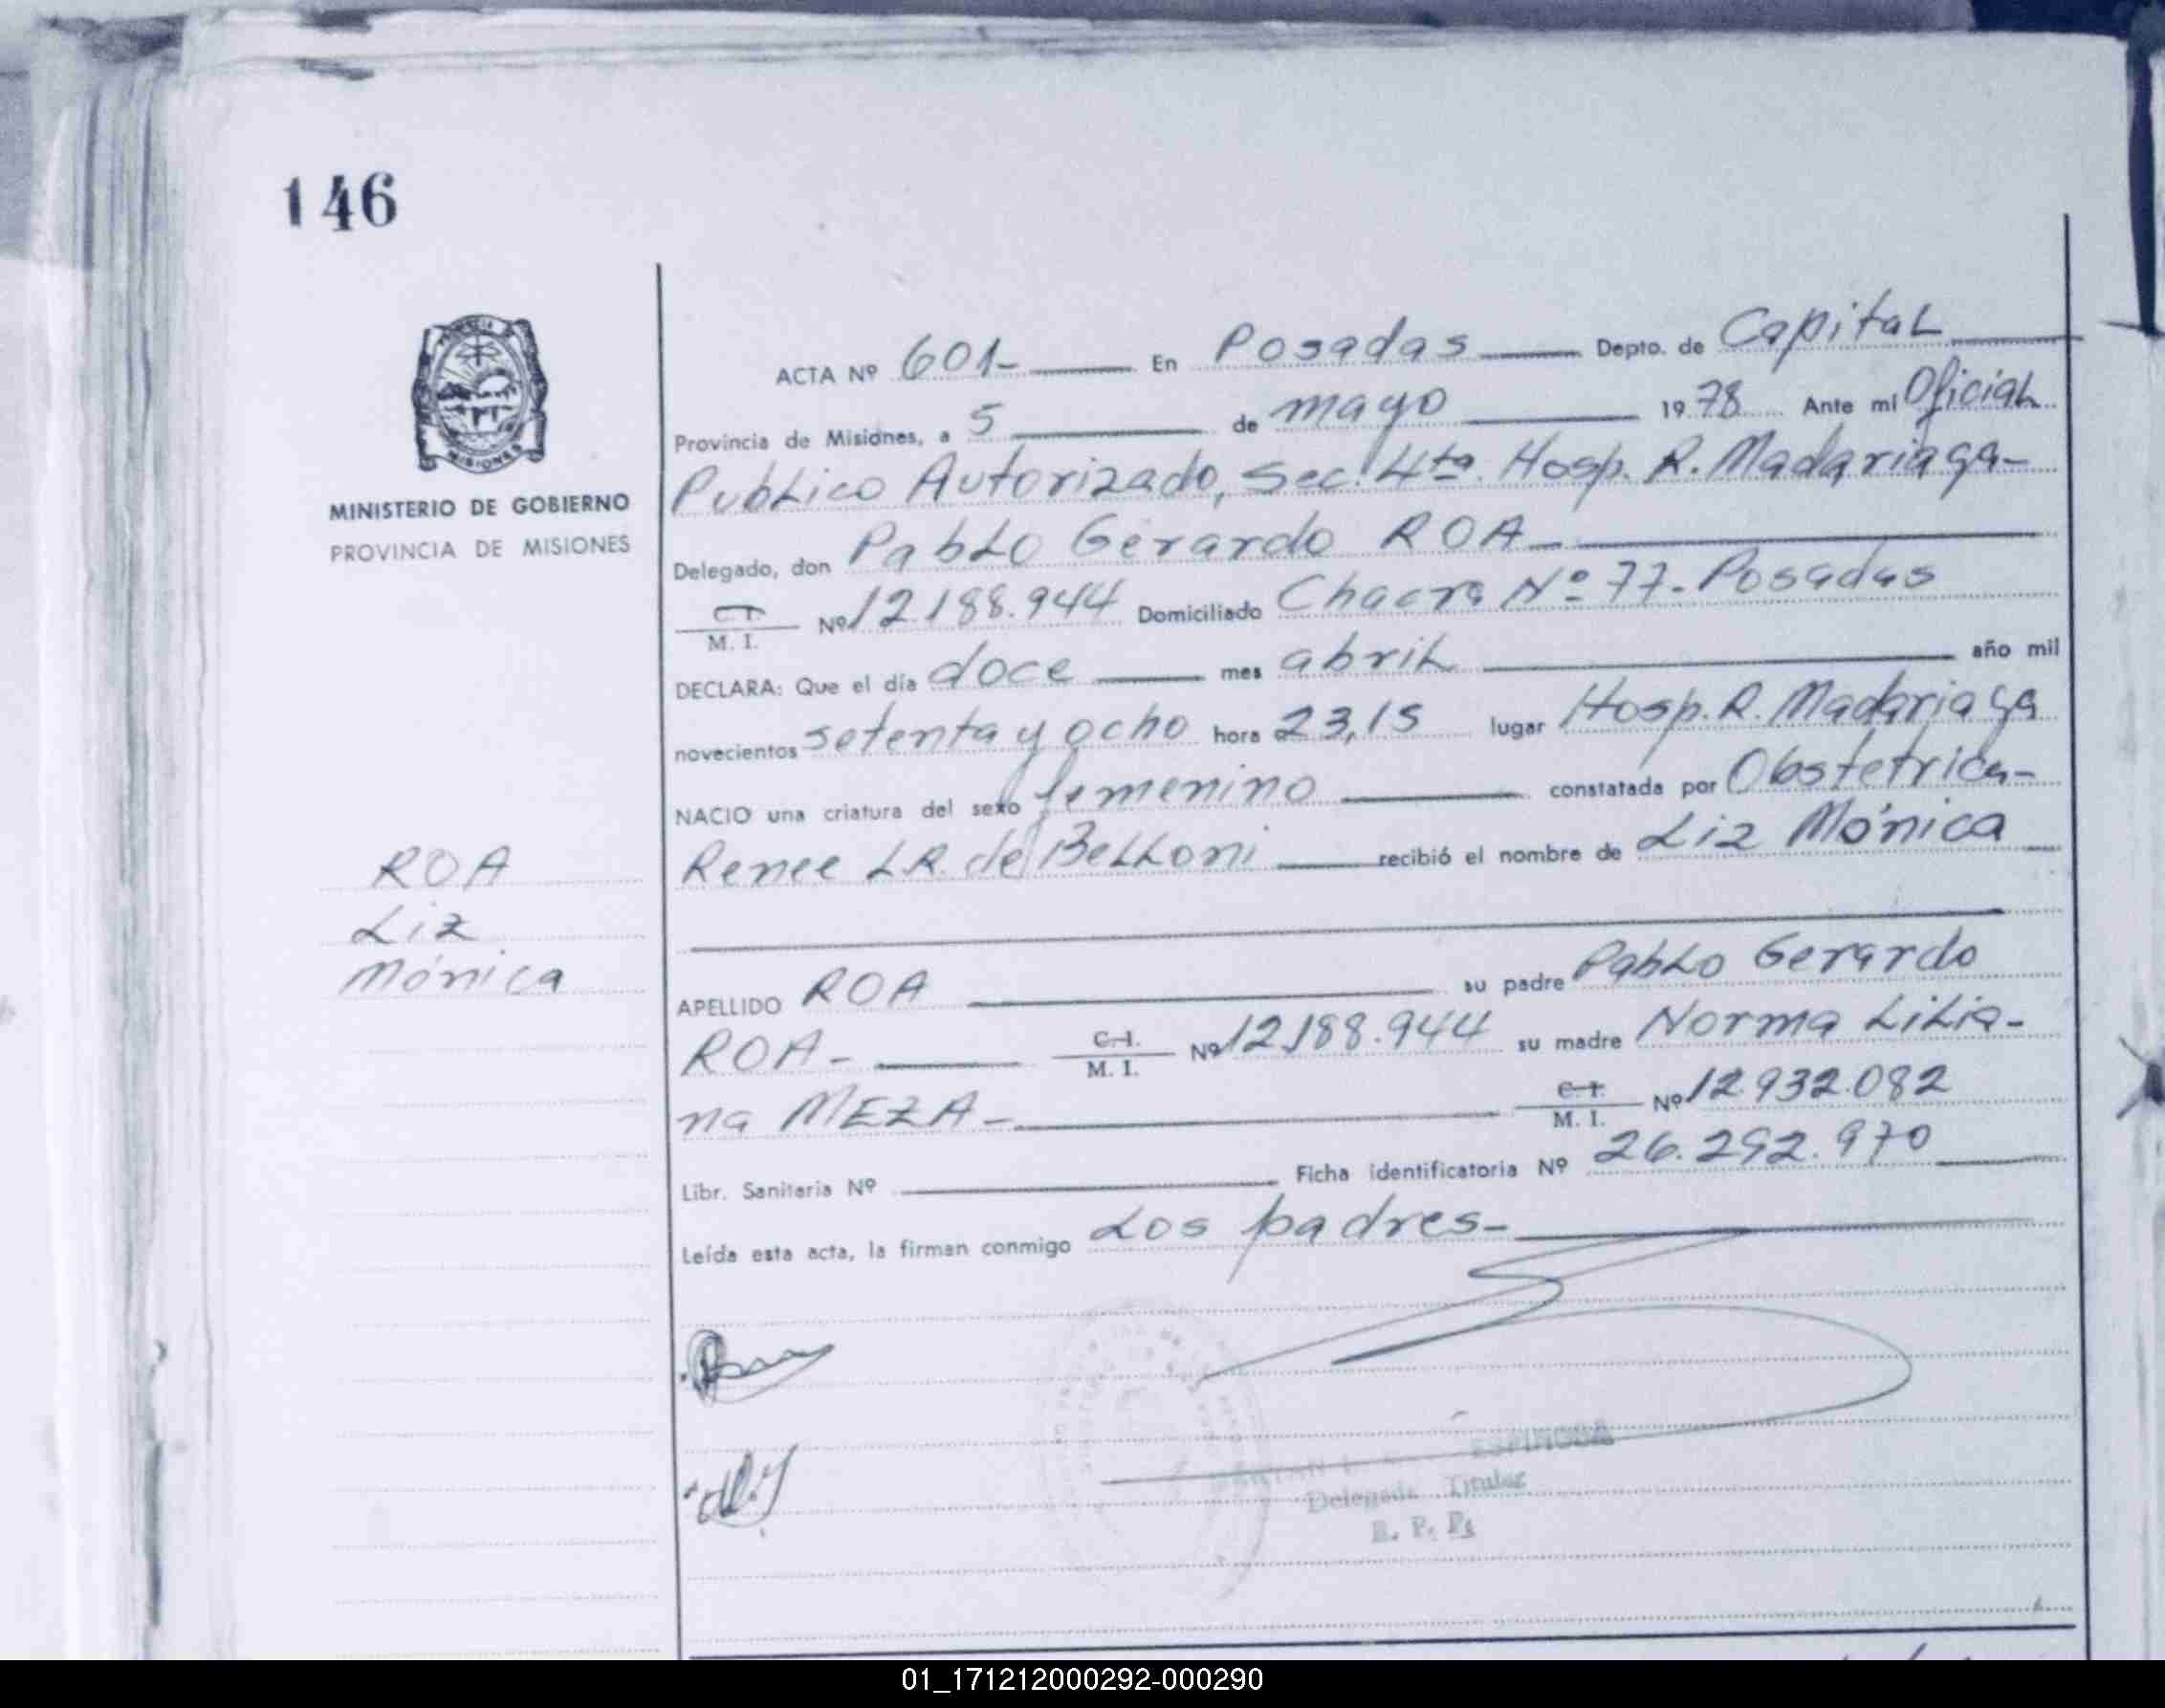 146
MISIONES
MINISTERIO DE GOBIERNO
PROVINCIA DE MISIONES
ROA
Liz
Mónica
ACTA Nº 601- En Posadas Depto. de Capital
Provincia de Misiones, a 5 de mayo 1978 Ante mí Oficial
Publico Autorizado, Sec. 4ta. Hosp. R. Madariaga-
Delegado, don Pablo Gerardo ROA-
C. I. / M. I. Nº 12.188.944 Domiciliado Chacra Nº 77-Posadas
DECLARA: Que el día doce mes abril año mil
novecientos setenta y ocho hora 23,15 lugar Hosp. R. Madariaga
NACIO una criatura del sexo femenino constatada por Obstetrica-
Renee L.R. de Belloni recibió el nombre de Liz Mónica
APELLIDO ROA su padre Pablo Gerardo
ROA- C. I. / M. I. Nº 12.188.944 su madre Norma Lilia-
na MEZA- C. I. / M. I. Nº 12.932.082
Libr. Sanitaria Nº Ficha identificatoria Nº 26.292.970
Leída esta acta, la firman conmigo Los padres-
ESPINOSA
Delegado Titular
R. P. P.
01_171212000292-000290